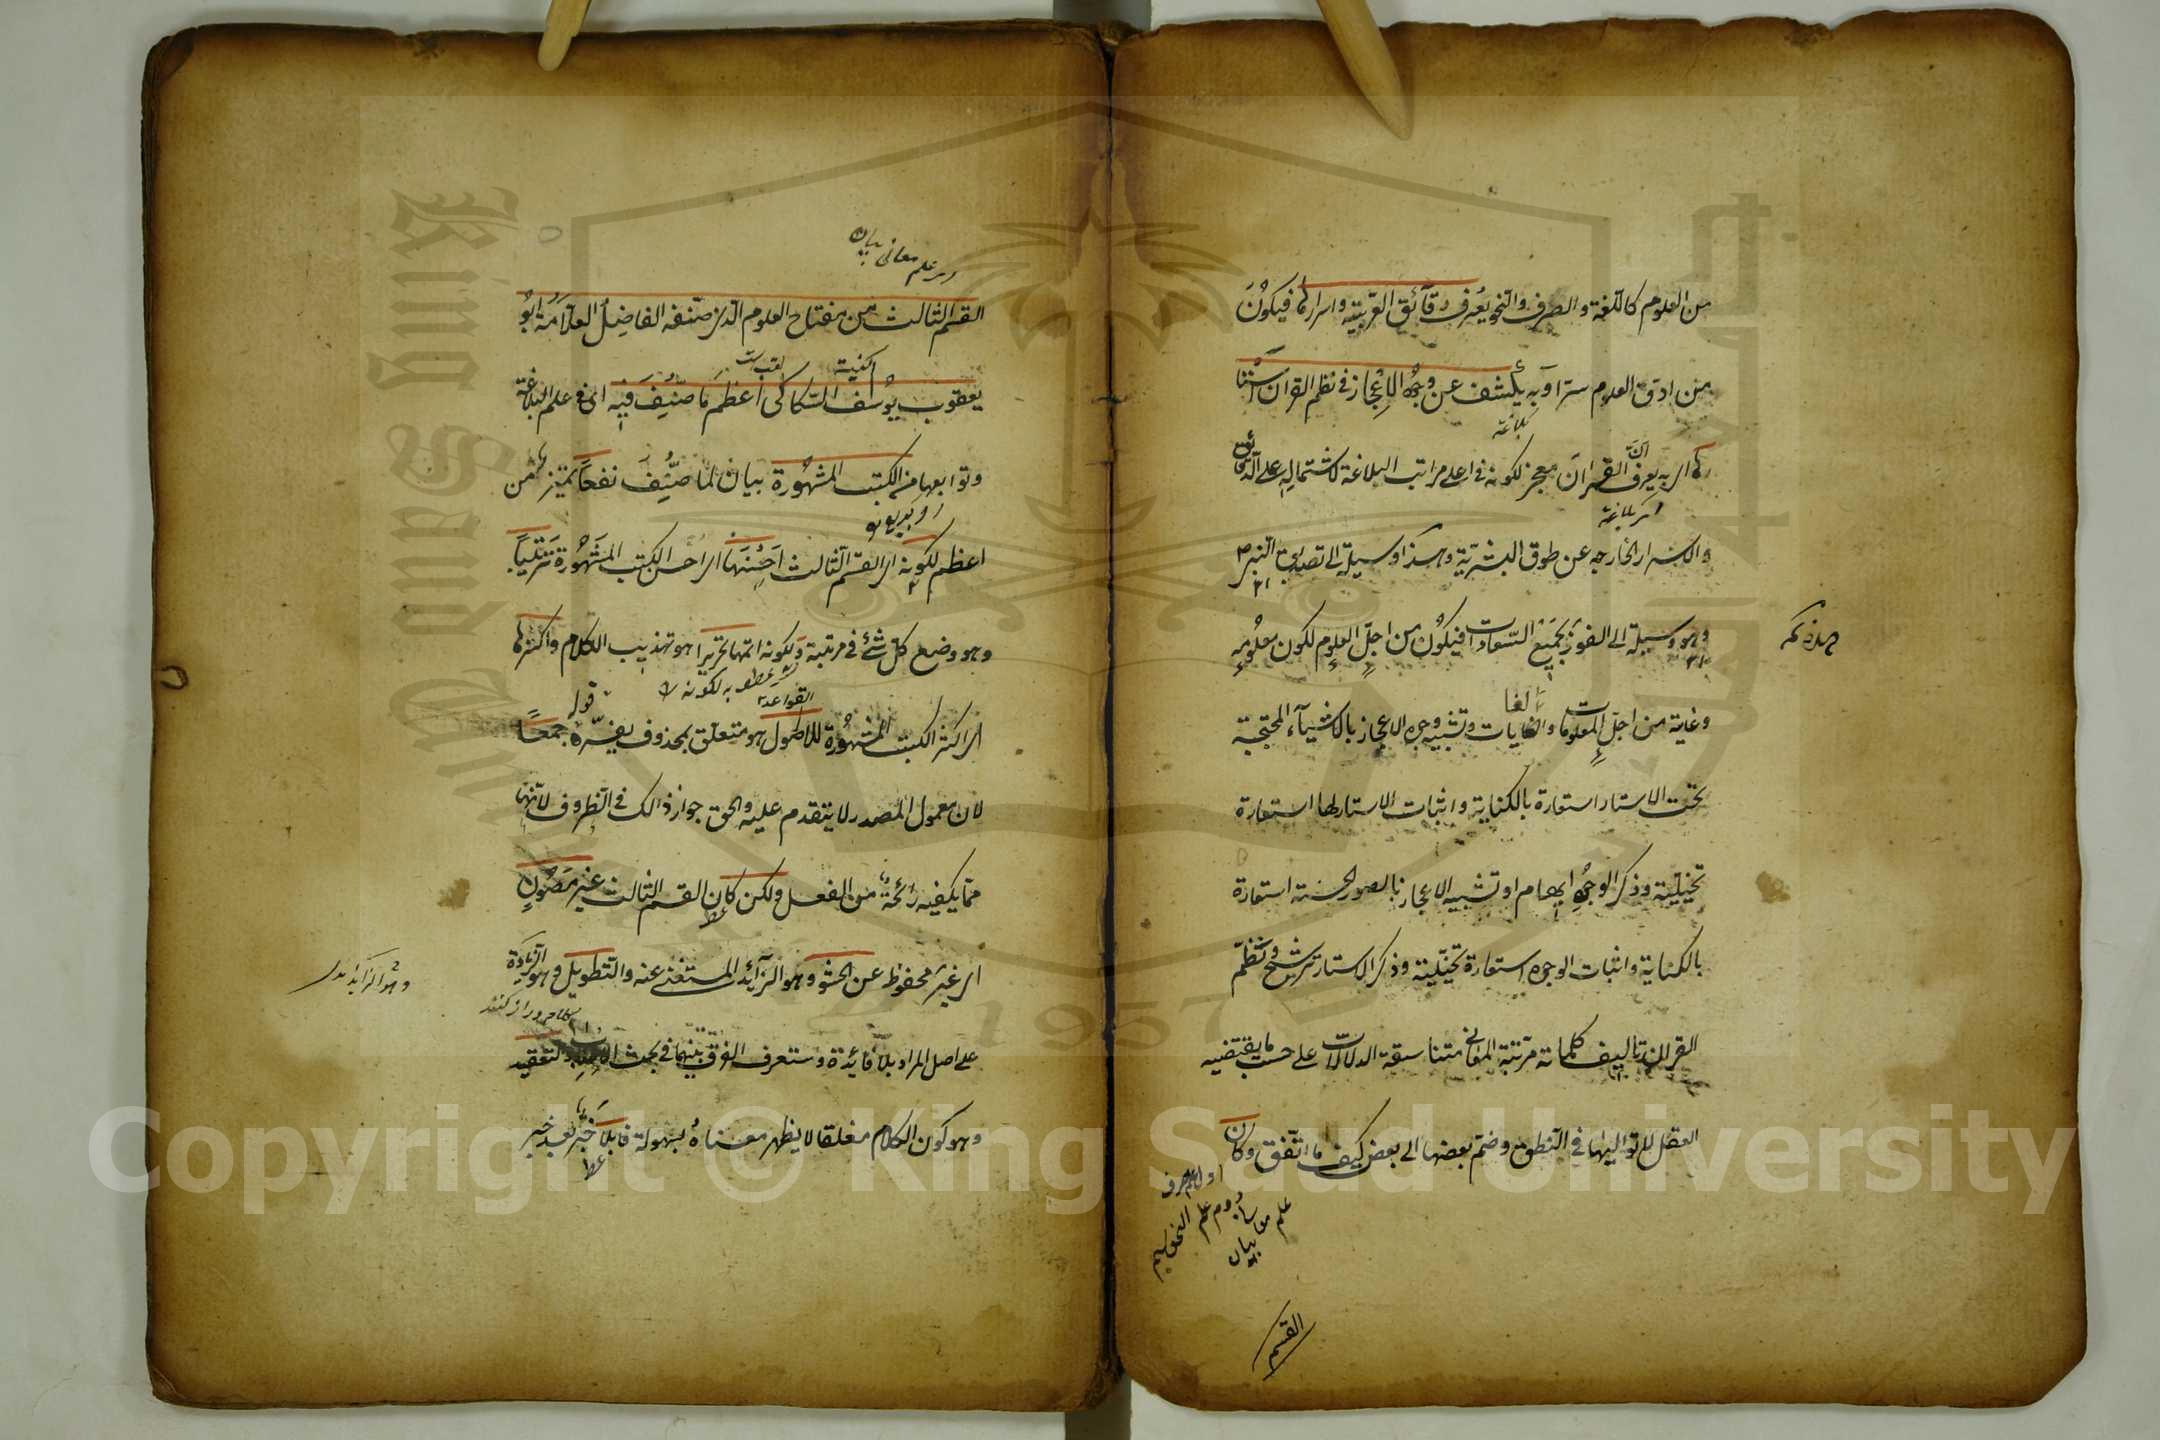 من العلوم كاللغة والصرف والنحو يعرف دقائق العربية واسرارها فيكون
من ادق العلوم سرا وبه يكشف عن وجوه الاعجاز في نظم القران استارها
اى به يعرف ان القران معجز لكونه في اعلى مراتب البلاغة لاشتماله على الدقائق
بلاغة
والاسرار الخارجه عن طوق البشرية وهذا وسيلة الى تصديق النبي
وهو وسيلة الى الفوز بجميع السعادات فيكون من اجل العلوم لكون معلومه
وغايته من اجل المعلومات والغايات وتشبيه وجوه الاعجاز بالاشياء المحتجبة
تحت الاستار استعارة بالكناية واثبات الاستار لها استعارة
تخييلية وذكر الوجوه ايهام او تشبيه الاعجاز بالصور الحسنة استعارة
بالكناية واثبات الوجوه استعارة تخييلية وذكر الاستار ترشيح ونظم
القران تاليف كلماته مرتبة المعاني متناسقة الدلالات على حسب ما يقتضيه
العقل لا تواليها في النطق وضم بعضها الى بعض كيف ما اتفق وكان
القسم
علم معانى بيان
القسم الثالث من مفتاح العلوم الذى صنفه الفاضل العلامة ابو
كنيته
لقب است
يعقوب يوسف السكاكى اعظم ما صنف فيه اى في علم البلاغة
وتوابعها من الكتب المشهورة بيان لما صنف نفعا تميز من
اعظم لكونه اى القسم الثالث احسنها اى احسن الكتب المشهورة ترتيبا
وهو وضع كل شئ في مرتبة ولكونه اتمها تحريرا هو تهذيب الكلام واكثرها
القواعد
اى اكثر الكتب المشهورة للاصول هو متعلق بمحذوف يفسره قوله جمعا
لان معمول المصدر لا يتقدم عليه والحق جواز ذالك في الظروف لانها
مما يكفيه رائحة من الفعل ولكن كان القسم الثالث غير مصون
اى غير محفوظ عن الحشو وهو الزائد المستغنى عنه والتطويل وهو الزيادة
على اصل المراد بلا فائدة وستعرف الفرق بينهما في بحث الاطناب والتعقيد
وهو كون الكلام مغلقا لا يظهر معناه بسهولة قابلا خبر بعد خبر